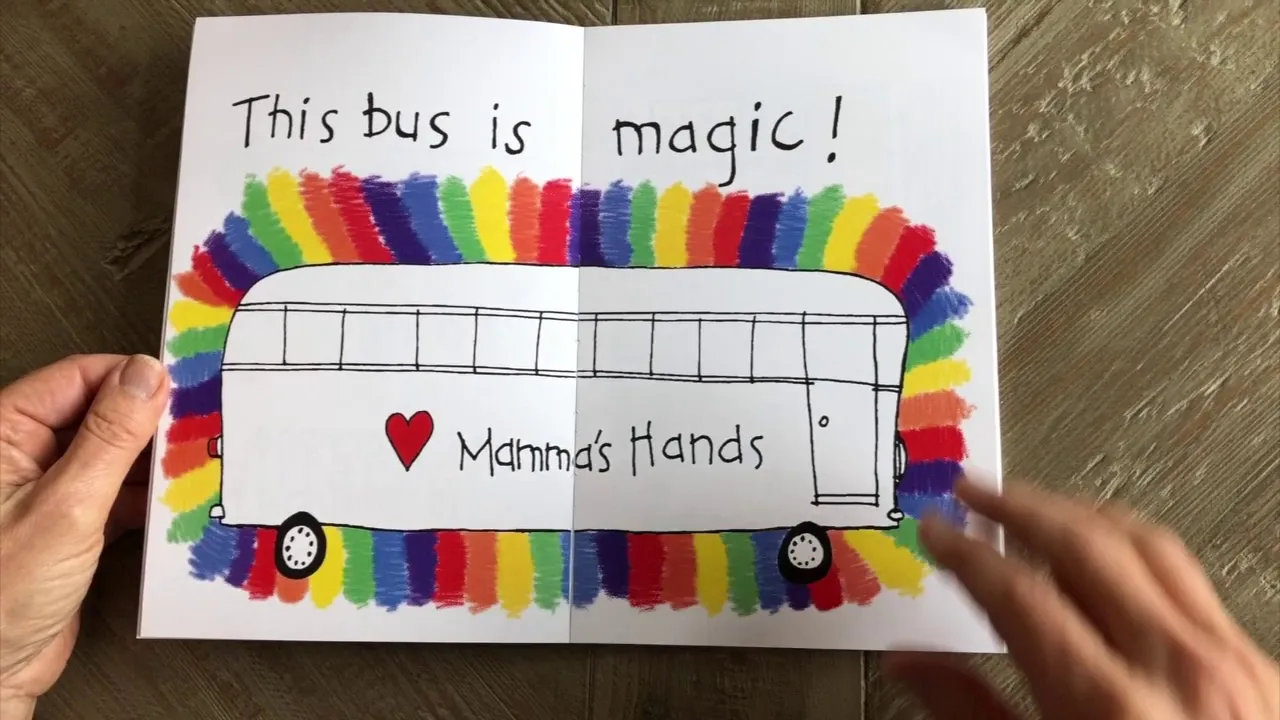 This bus is magic!
Mamma's Hands